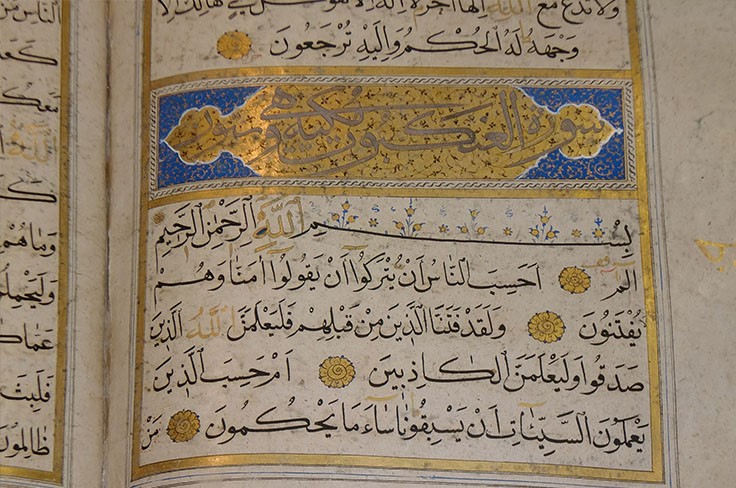 ولا تدع مع الله الها اخر لا اله الا هو كل شي هالك الا
وجهه له الحكم واليه ترجعون
سورة العنكبوت مكية وهي
بسم الله الرحمن الرحيم
الم احسب الناس ان يتركوا ان يقولوا امنا وهم
يفتنون ولقد فتنا الذين من قبلهم فليعلمن الله الذين
صدقوا وليعلمن الكاذبين ام حسب الذين
يعملون السيئات ان يسبقونا ساء ما يحكمون من
الناس
معكم
الله
وما هم
وليحملن
عما
فلبث
ظالمون